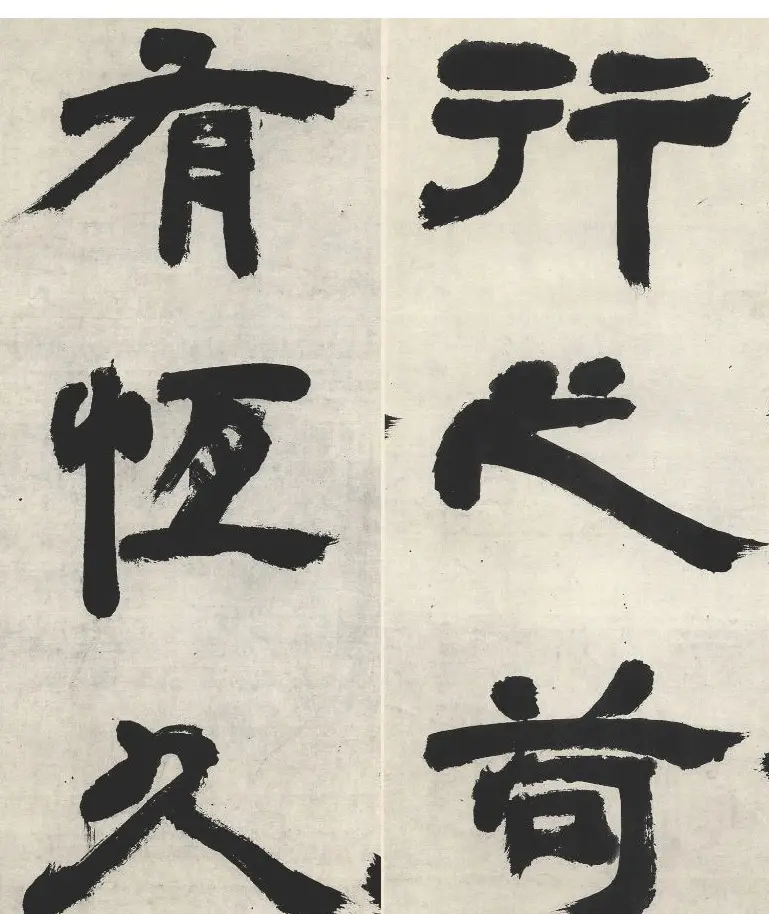 行之苟
有恆久